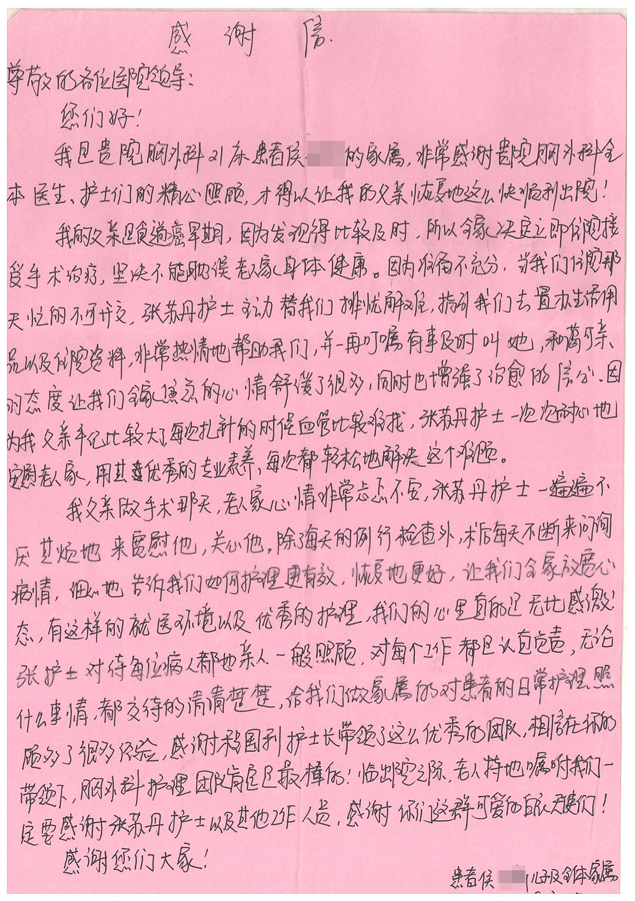 感谢信.
尊敬的各位医院领导:
您们好!
我是贵院胸外科21床患者侯 的家属,非常感谢贵院胸外科全
本医生、护士们的精心照顾,才得以让我的父亲恢复地这么快顺利出院!
我的父亲是食道癌早期,因为发现得比较及时,所以全家决定立即住院接
受手术治疗,坚决不能耽误老人家身体健康。因为准备不充分,当我们住院那
天忙的不可开交,张苏丹护士主动替我们排忧解难,指引我们去置办生活用
品以及住院资料,非常热情地帮助我们,并一再叮嘱有事及时叫她,和蔼可亲
的态度让我们全家焦虑的心情舒缓了很多,同时也增强了治愈的信心.因
为我父亲年纪比较大了每次扎针的时候血管比较难找,张苏丹护士一次次耐心地
安慰老人家,用其优秀的专业素养,每次都轻松地解决这个难题。
我父亲做手术那天,老人家心情非常忐忑不安,张苏丹护士一遍遍不
厌其烦地来安慰他,关心他。除了每天的例行检查外,术后每天不断来问询
病情,细心地告诉我们如何护理更有效,恢复地更好,让我们全家放宽心
态,有这样的就医环境以及优秀的护理,我们的心里真的是无比感激!
张护士对待每位病人都如亲人一般照顾,对每个工作都认真负责,无论
什么事情,都交待的清清楚楚,给我们做家属的对患者的日常护理照
顾多了很多经验,感谢 护士长带领了这么优秀的团队,相信在您的
带领下,胸外科护理团队肯定是最棒的!临出院之际,老人特地嘱咐我们一
定要感谢张苏丹护士以及其他工作人员,感谢你们这群可爱的白衣天使们!
感谢您们大家!
患者侯 儿子及全体家属